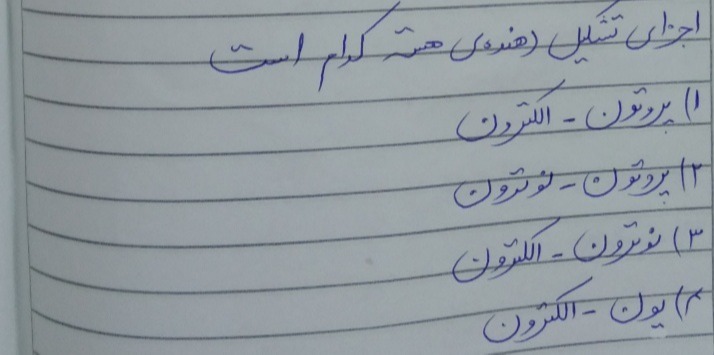 اجزای تشکیل دهنده‌ی هسته کدام است
۱) پروتون - الکترون
۲) پروتون - نوترون
۳) نوترون - الکترون
۴) یون - الکترون